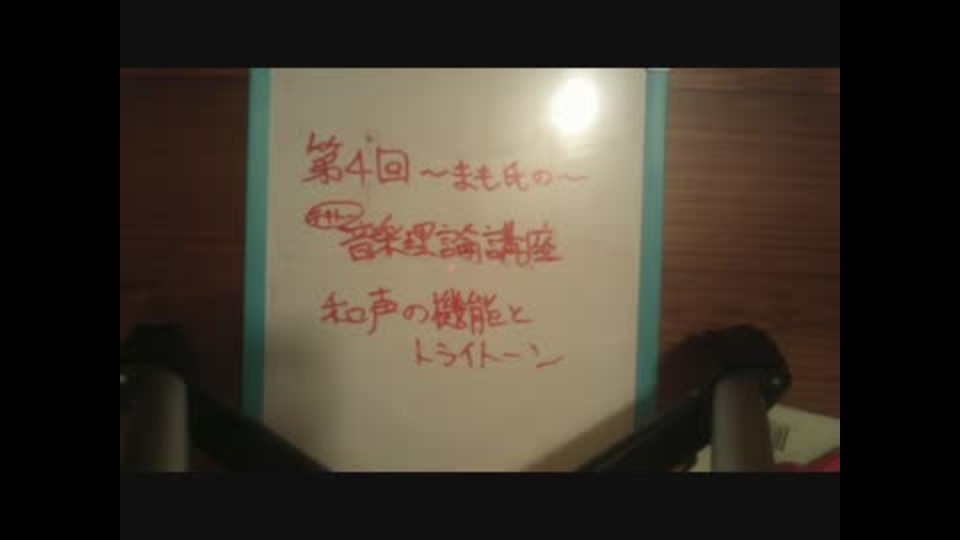 第4回 〜まも氏の〜
音楽理論講座
和声の機能と
トライトーン